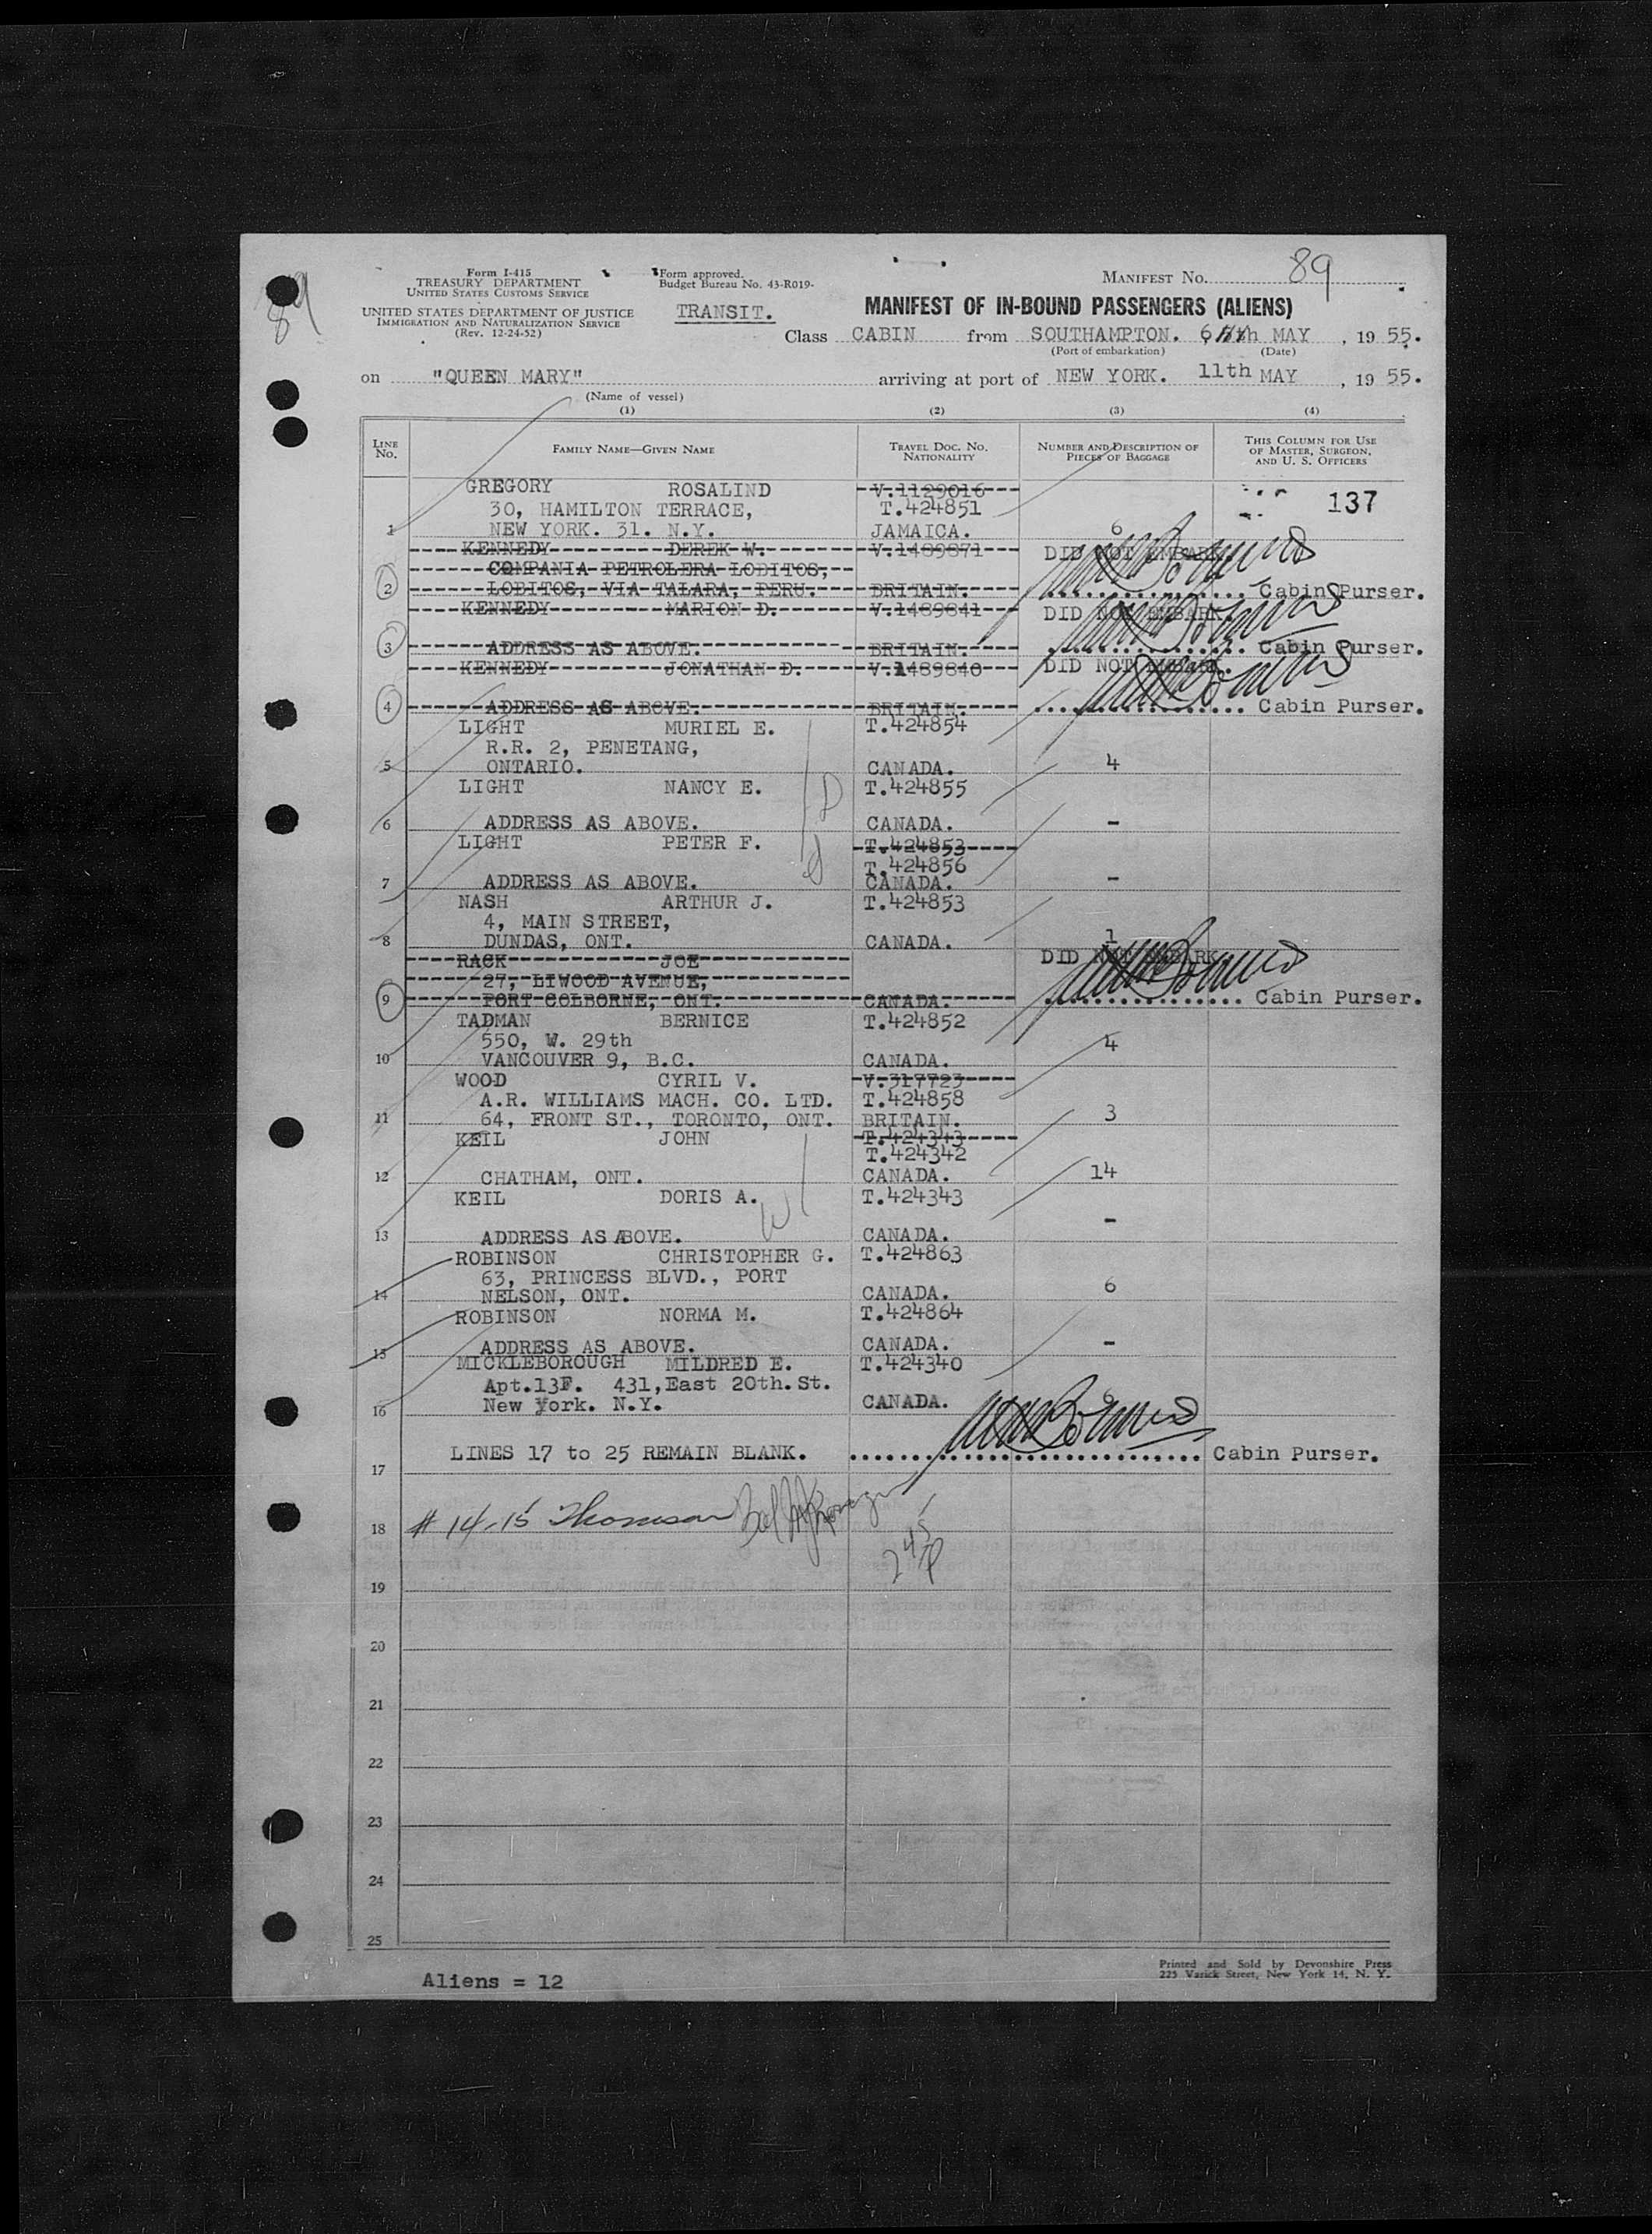 89
Form I-415
TREASURY DEPARTMENT
UNITED STATES CUSTOMS SERVICE
UNITED STATES DEPARTMENT OF JUSTICE
IMMIGRATION AND NATURALIZATION SERVICE
(Rev. 12-24-52)
Form approved.
Budget Bureau No. 43-R019-
TRANSIT.
MANIFEST NO. 89
MANIFEST OF IN-BOUND PASSENGERS (ALIENS)
Class CABIN from SOUTHAMPTON. 6th MAY , 19 55.
(Port of embarkation) (Date)
on "QUEEN MARY" arriving at port of NEW YORK. 11th MAY , 19 55.
(Name of vessel)
(1) (2) (3) (4)
LINE NO. FAMILY NAME—GIVEN NAME TRAVEL DOC. NO. NATIONALITY NUMBER AND DESCRIPTION OF PIECES OF BAGGAGE THIS COLUMN FOR USE OF MASTER, SURGEON, AND U. S. OFFICERS
GREGORY ROSALIND V.1129016
30, HAMILTON TERRACE, T.424851 137
1 NEW YORK. 31. N.Y. JAMAICA. 6
KENNEDY DEREK W. V.1489871 DID NOT EMBARK
COMPANIA PETROLERA LOBITOS,
2 LOBITOS, VIA TALARA, PERU. BRITAIN. Cabin Purser.
KENNEDY MARION D. V.1489841 DID NOT EMBARK
3 ADDRESS AS ABOVE. BRITAIN. Cabin Purser.
KENNEDY JONATHAN D. V.1489840 DID NOT EMBARK.
4 ADDRESS AS ABOVE. BRITAIN. Cabin Purser.
LIGHT MURIEL E. T.424854
R.R. 2, PENETANG,
5 ONTARIO. CANADA. 4
LIGHT NANCY E. T.424855
6 ADDRESS AS ABOVE. CANADA. -
LIGHT PETER F. T.424853
T.424856
7 ADDRESS AS ABOVE. CANADA. -
NASH ARTHUR J. T.424853
4, MAIN STREET,
8 DUNDAS, ONT. CANADA. 1
RACK JOE DID NOT EMBARK
27, LIWOOD AVENUE,
9 PORT COLBORNE, ONT. CANADA. Cabin Purser.
TADMAN BERNICE T.424852
550, W. 29th 4
10 VANCOUVER 9, B.C. CANADA.
WOOD CYRIL V. V.317723
A.R. WILLIAMS MACH. CO. LTD. T.424858
11 64, FRONT ST., TORONTO, ONT. BRITAIN. 3
KEIL JOHN T.424343
T.424342
12 CHATHAM, ONT. CANADA. 14
KEIL DORIS A. T.424343
-
13 ADDRESS AS ABOVE. CANADA.
ROBINSON CHRISTOPHER G. T.424863
63, PRINCESS BLVD., PORT
14 NELSON, ONT. CANADA. 6
ROBINSON NORMA M. T.424864
15 ADDRESS AS ABOVE. CANADA. -
MICKLEBOROUGH MILDRED E. T.424340
Apt.13F. 431, East 20th. St.
16 New York. N.Y. CANADA. 6
LINES 17 to 25 REMAIN BLANK. Cabin Purser.
17
18 # 14-15 Thomson
245P
19
20
21
22
23
24
25
Aliens = 12
Printed and Sold by Devonshire Press
225 Varick Street, New York 14, N. Y.